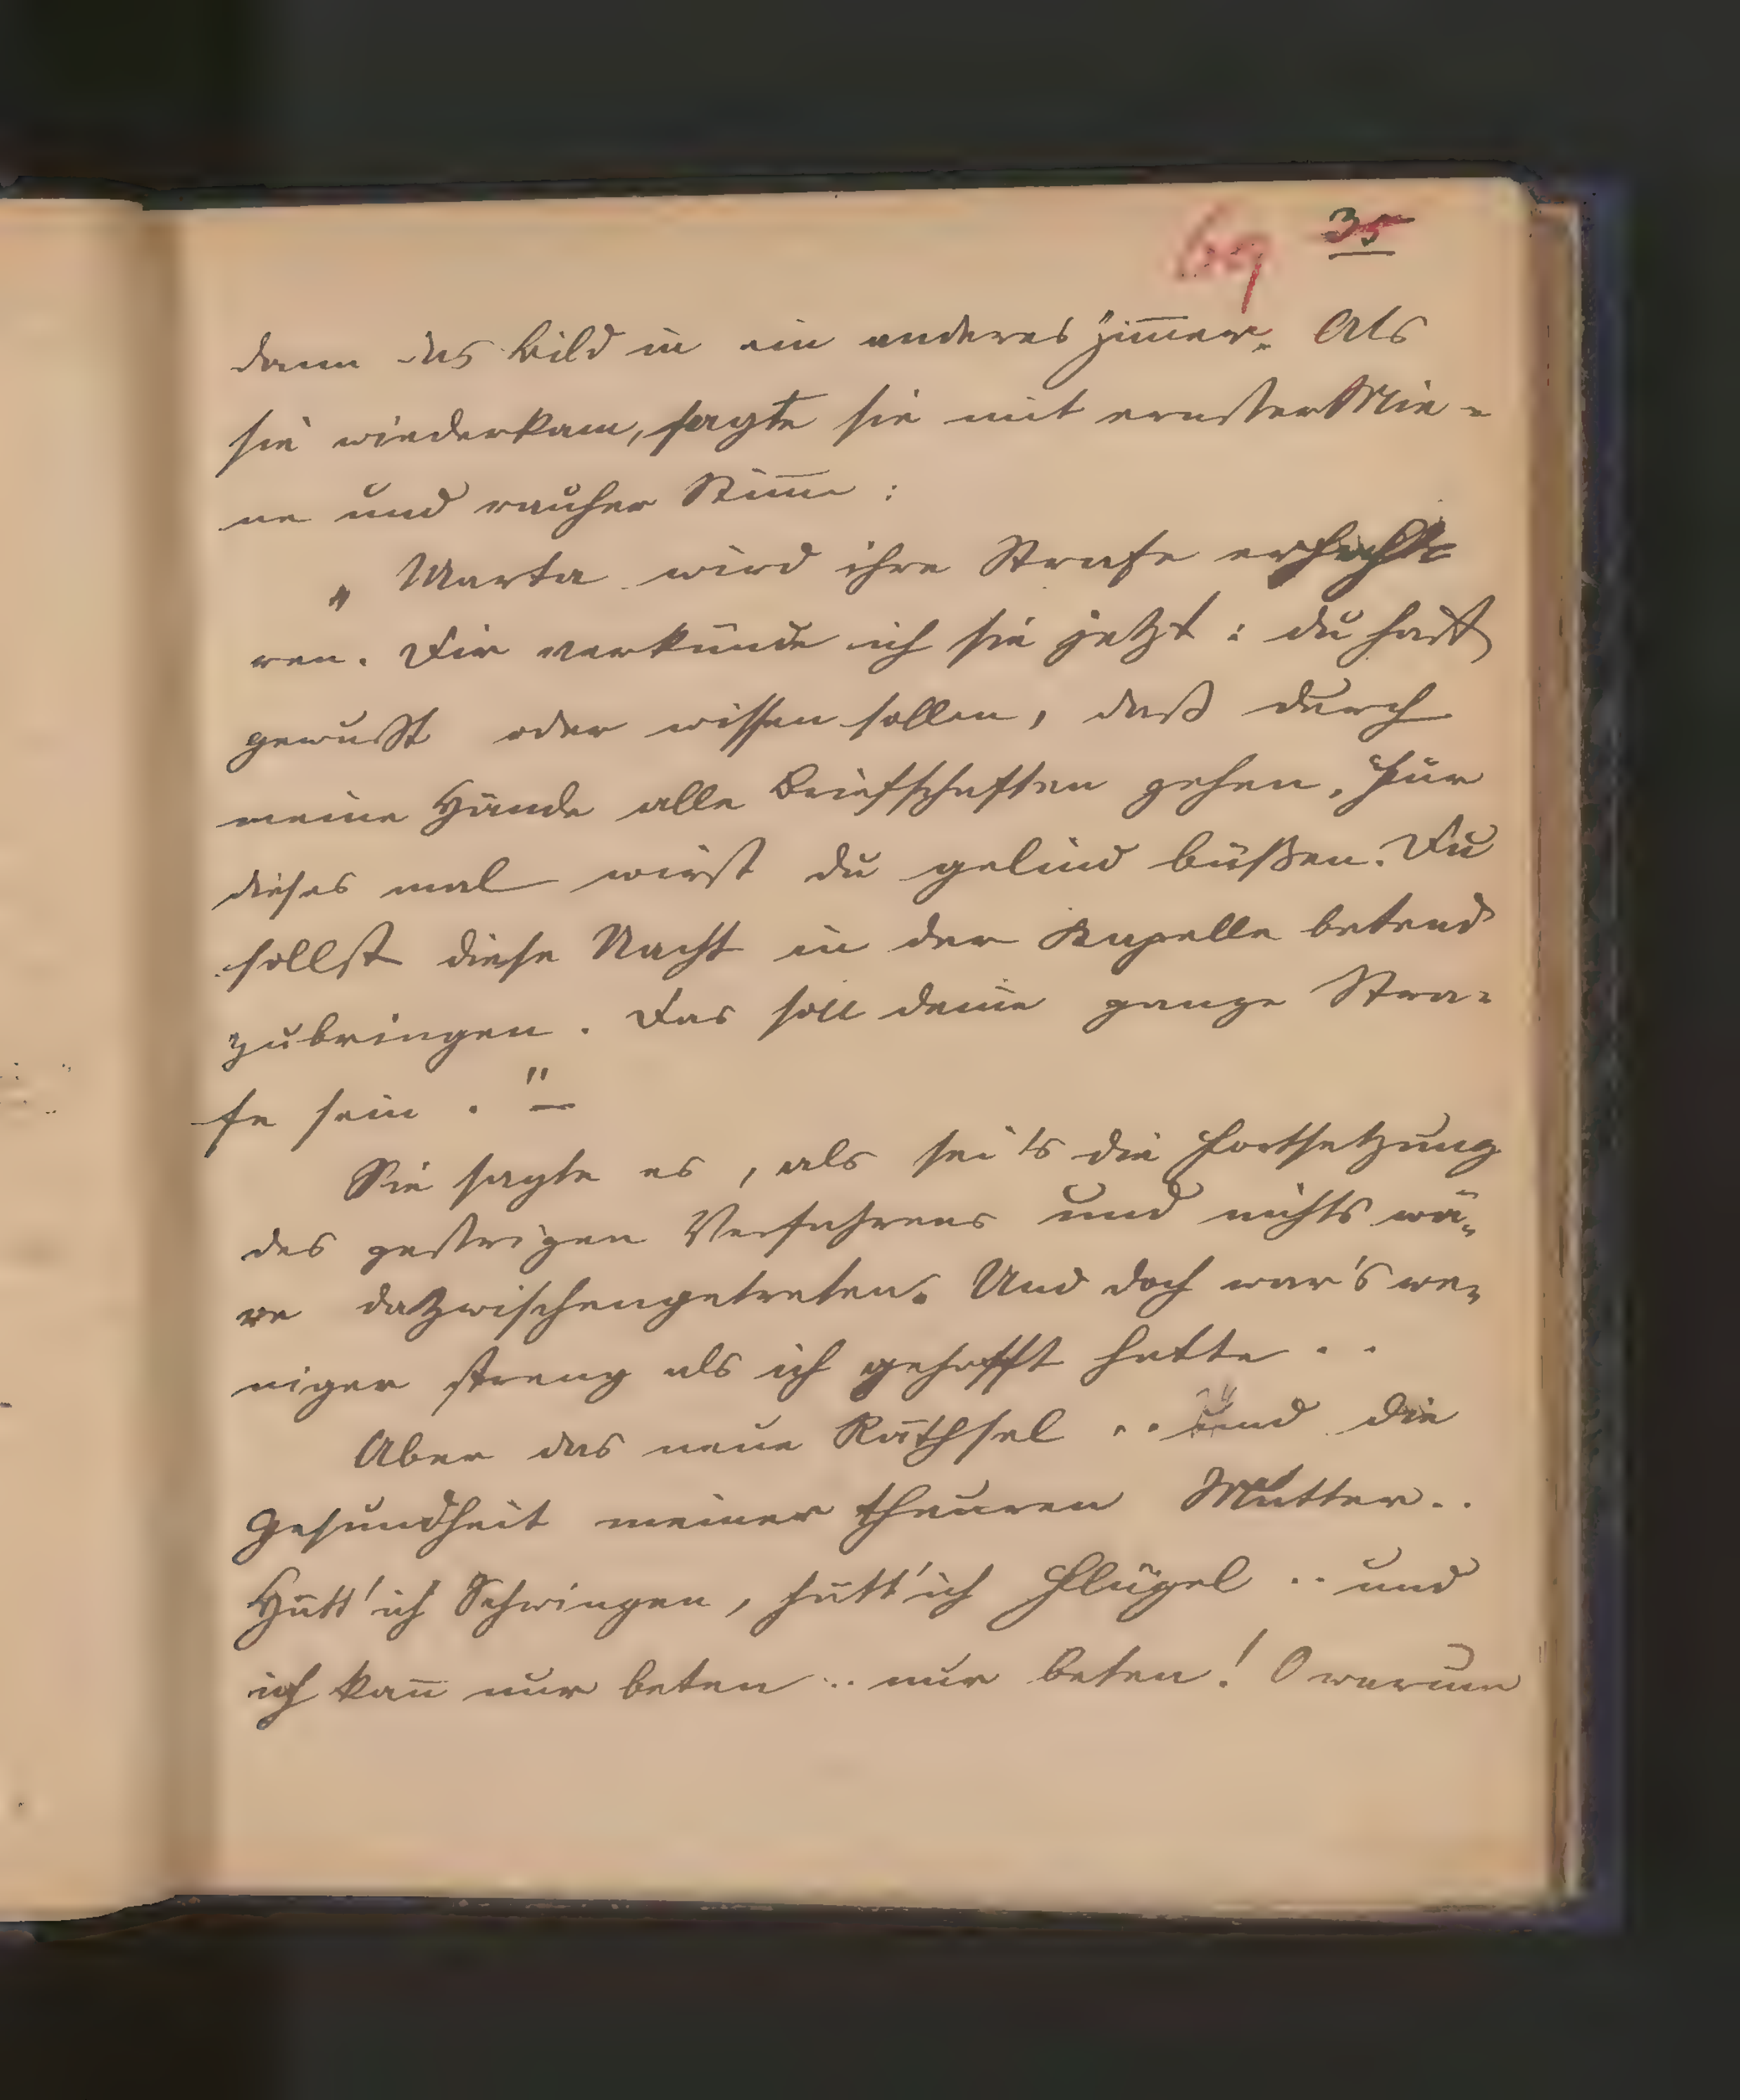 69 35
dann das Bild in ein anderes Zim̅er. Als
sie wiederkam, sagte sie mit ernster Mie-
ne und rauher Stim̅e:
„Marta wird ihre Strafe erfah-
ren. Dir verkünde ich sie jetzt: du hast
gewußt oder wissen sollen, daß durch
meine Hände alle Briefschaften gehen. Für
dieses mal wirst du gelind büßen. Du
sollst diese Nacht in der Kapelle betend
zubringen. Das soll deine ganze Stra-
fe sein." –
Sie sagte es, als sei's die Fortsetzung
des gestrigen Verfahrens und nichts wä-
re dazwischengetreten. Und doch war's we-
niger streng als ich gehofft hatte . .
Aber das neue Räthsel .. und die
Gesundheit meiner theuren Mutter..
Hätt' ich Schwingen, hätt' ich Flügel .. und
ich kan̅ nur beten .. nur beten! O warum